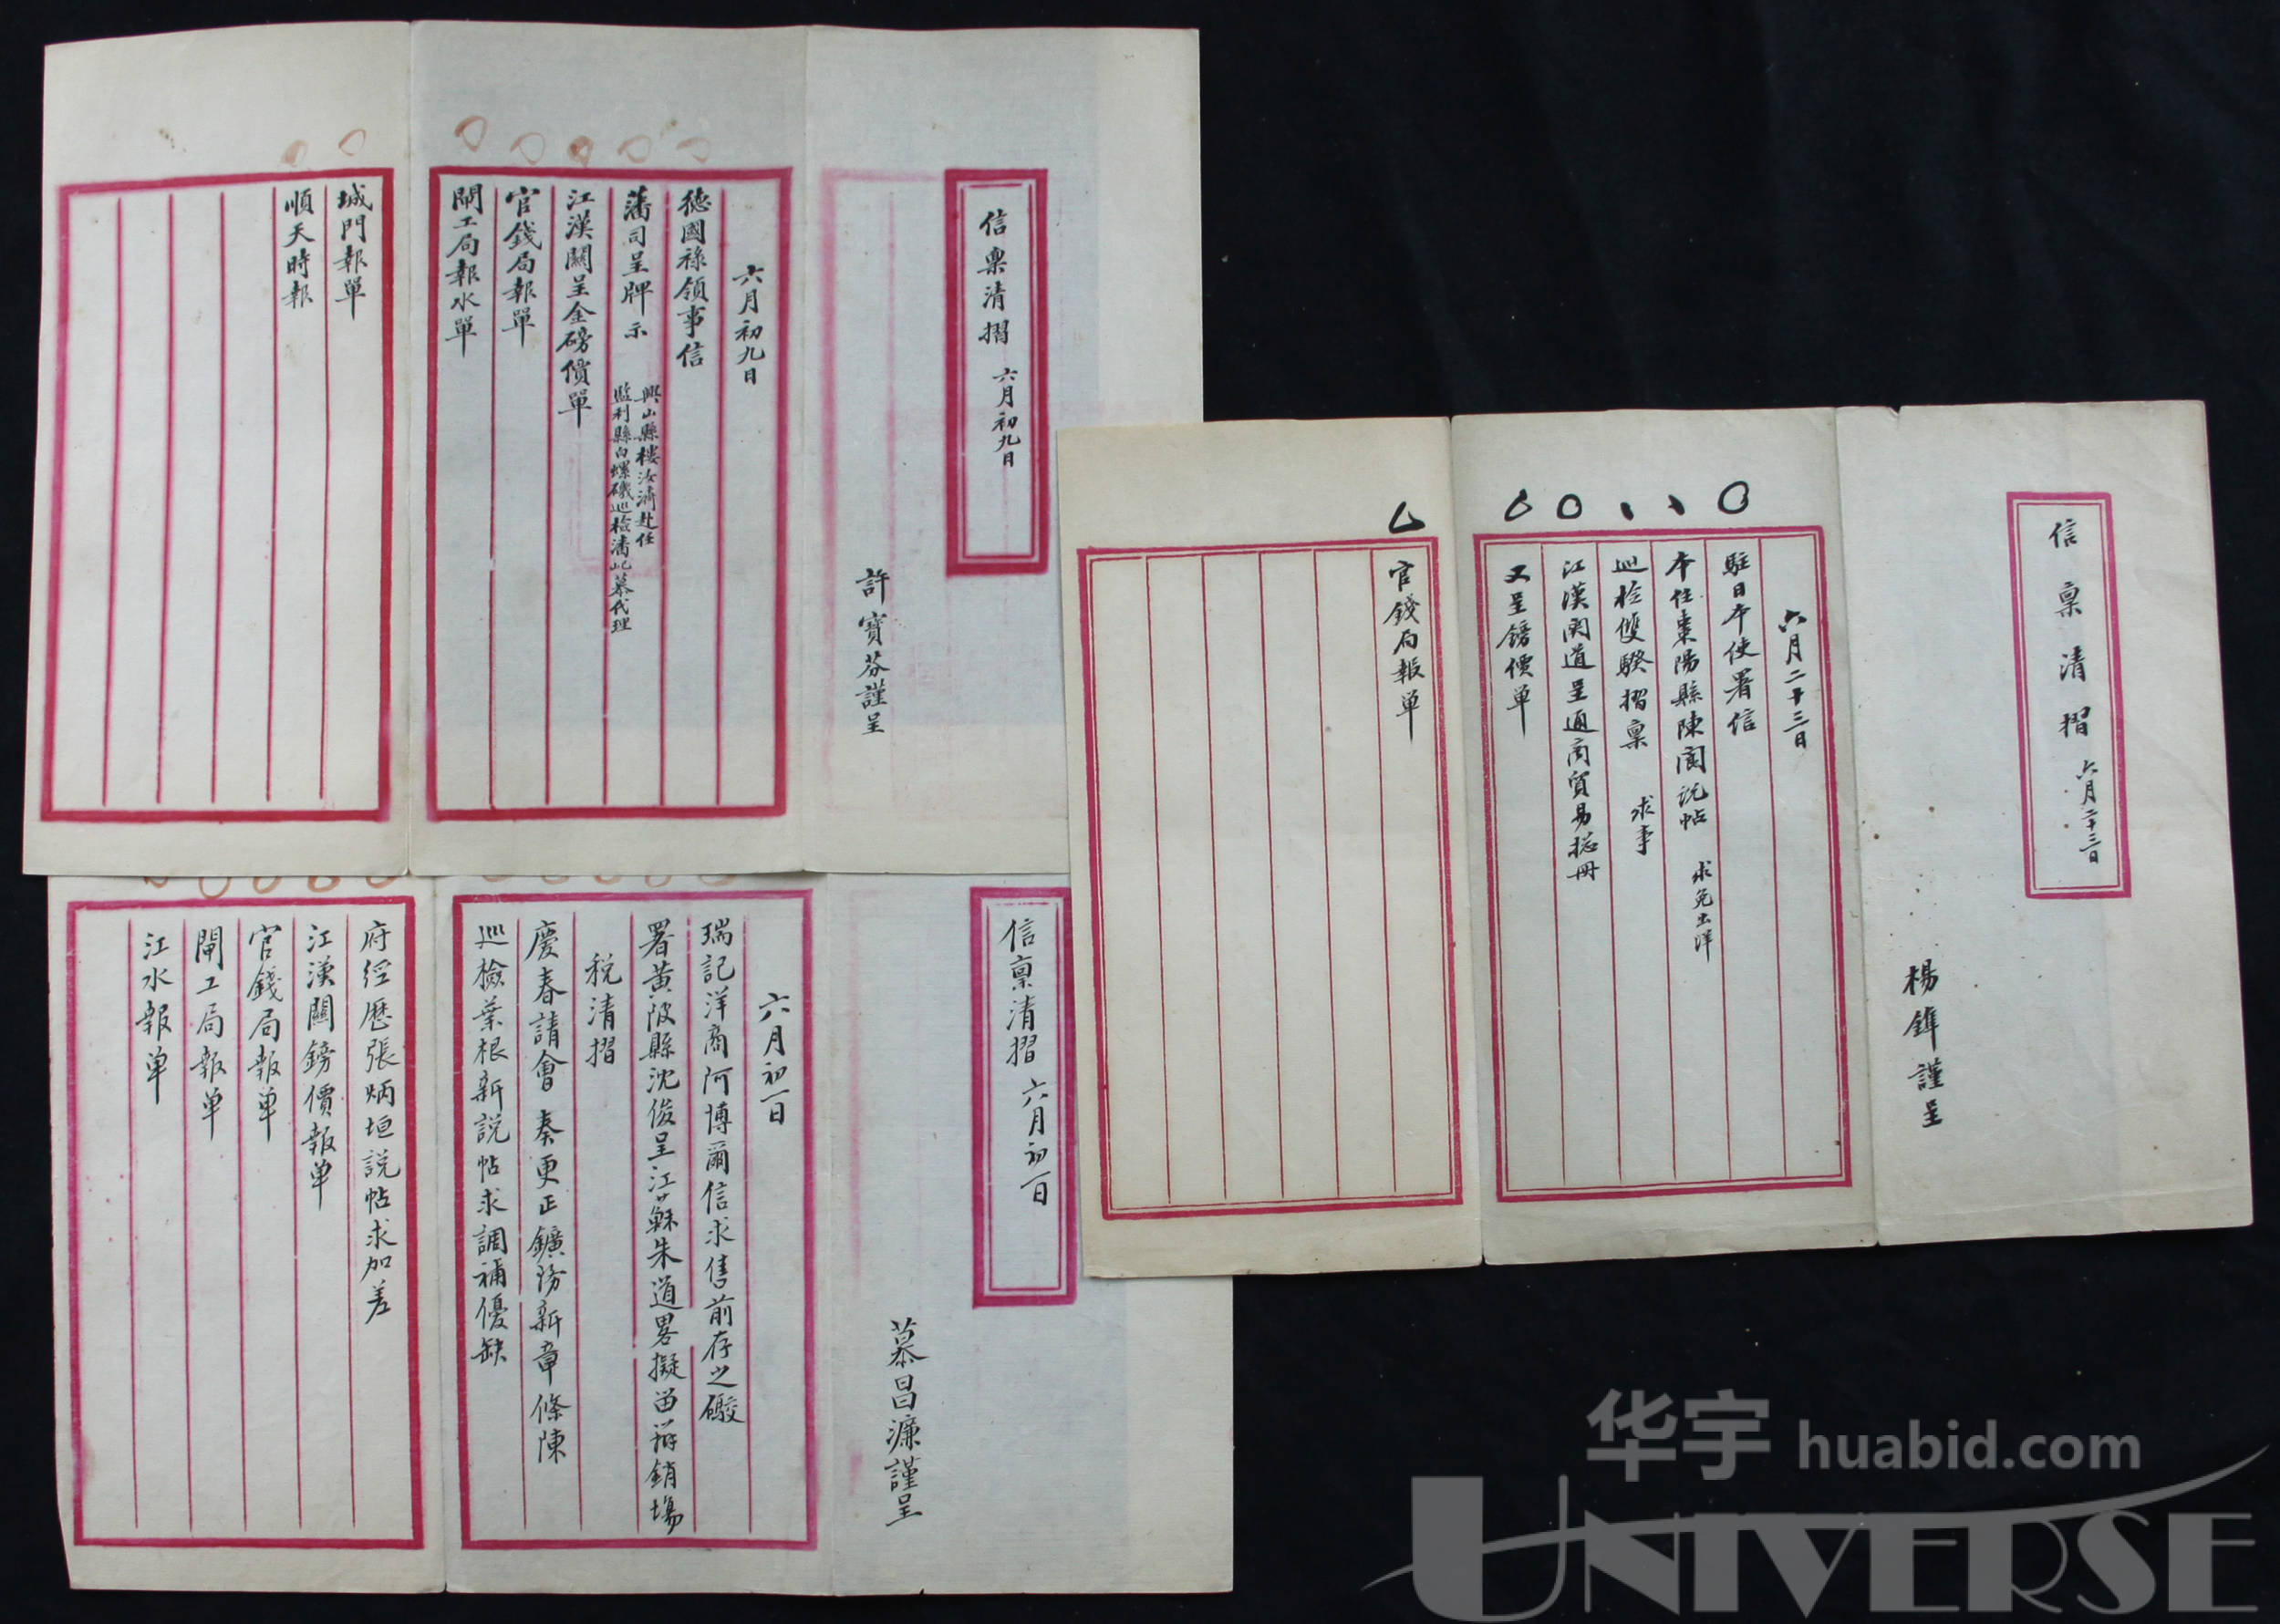 信稟清摺 六月初九日
許寶芬謹呈
六月初九日
德國祿領事信
藩司呈牌示 興山縣樓汝濟赴任
監利縣白螺磯巡檢潘 慕代理
江漢關呈金磅價單
官錢局報單
閘工局報水單
城門報單
順天時報
信稟清摺 六月初一日
慕昌濂謹呈
六月初一日
瑞記洋商阿博爾信求售前存之礮
署黃陂縣沈俊呈江蘇朱道畧擬畄辦銷塲
稅清摺
慶春請會奏更正鑛務新章條陳
巡檢葉根新説帖求調補優缺
府經歷張炳垣説帖求加差
江漢關鎊價報单
官錢局報单
閘工局報单
江水報单
信稟清摺 六月二十三日
楊鋅謹呈
六月二十三日
駐日本使署信
本任棗陽縣陳 説帖 求免出洋
巡檢雙騤摺稟 求事
江漢関道呈通商貿易總册
又呈鎊價单
官錢局報单
华宇 huabid.com
UNIVERSE